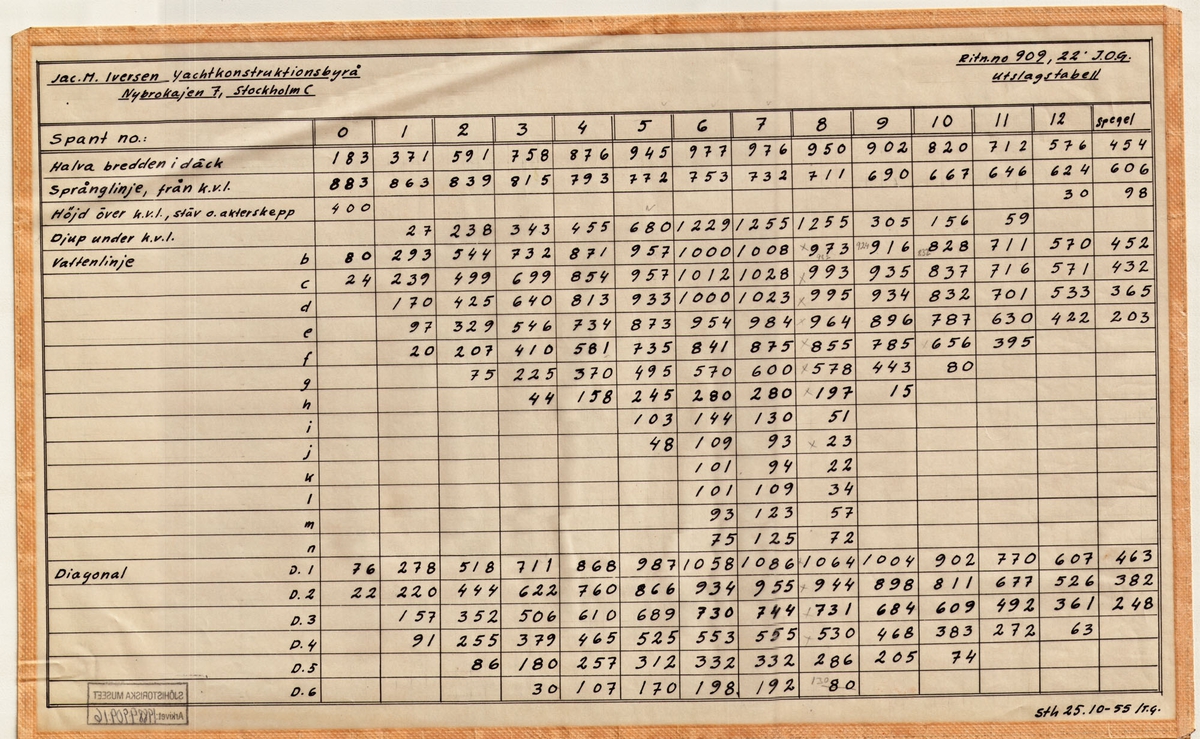 Jac. M. Iversen Yachtkonstruktionsbyrå
Nybrokajen 7, Stockholm C
Ritn.no 909, 22' J.O.G.
Utslagstabell
Spant no.: 0 1 2 3 4 5 6 7 8 9 10 11 12 spegel
Halva bredden i däck 183 371 591 758 876 945 977 976 950 902 820 712 576 454
Språnglinje, från k.v.l. 883 863 839 815 793 772 753 732 711 690 667 646 624 606
Höjd över k.v.l., stäv o. akterskepp 400 30 98
Djup under k.v.l. 27 238 343 455 680 1229 1255 1255 305 156 59
Vattenlinje b 80 293 544 732 871 957 1000 1008 973 924 916 828 711 570 452
c 24 239 499 699 854 957 1012 1028 993 935 837 716 571 432
d 170 425 640 813 933 1000 1023 995 934 832 701 533 365
e 97 329 546 734 873 954 984 964 896 787 630 422 203
f 20 207 410 581 735 841 875 855 785 656 395
g 75 225 370 495 570 600 578 443 80
h 44 158 245 280 280 197 15
i 103 144 130 51
j 48 109 93 23
k 101 94 22
l 101 109 34
m 93 123 57
n 75 125 72
Diagonal D.1 76 278 518 711 868 987 1058 1086 1064 1004 902 770 607 463
D.2 22 220 444 622 760 866 934 955 944 898 811 677 526 382
D.3 157 352 506 610 689 730 744 731 684 609 492 361 248
D.4 91 255 379 465 525 553 555 530 468 383 272 63
D.5 86 180 257 312 332 332 286 205 74
D.6 30 107 170 198 192 80
SJÖHISTORISKA MUSEET
Arkivet
Sth 25.10-55 /T.G.